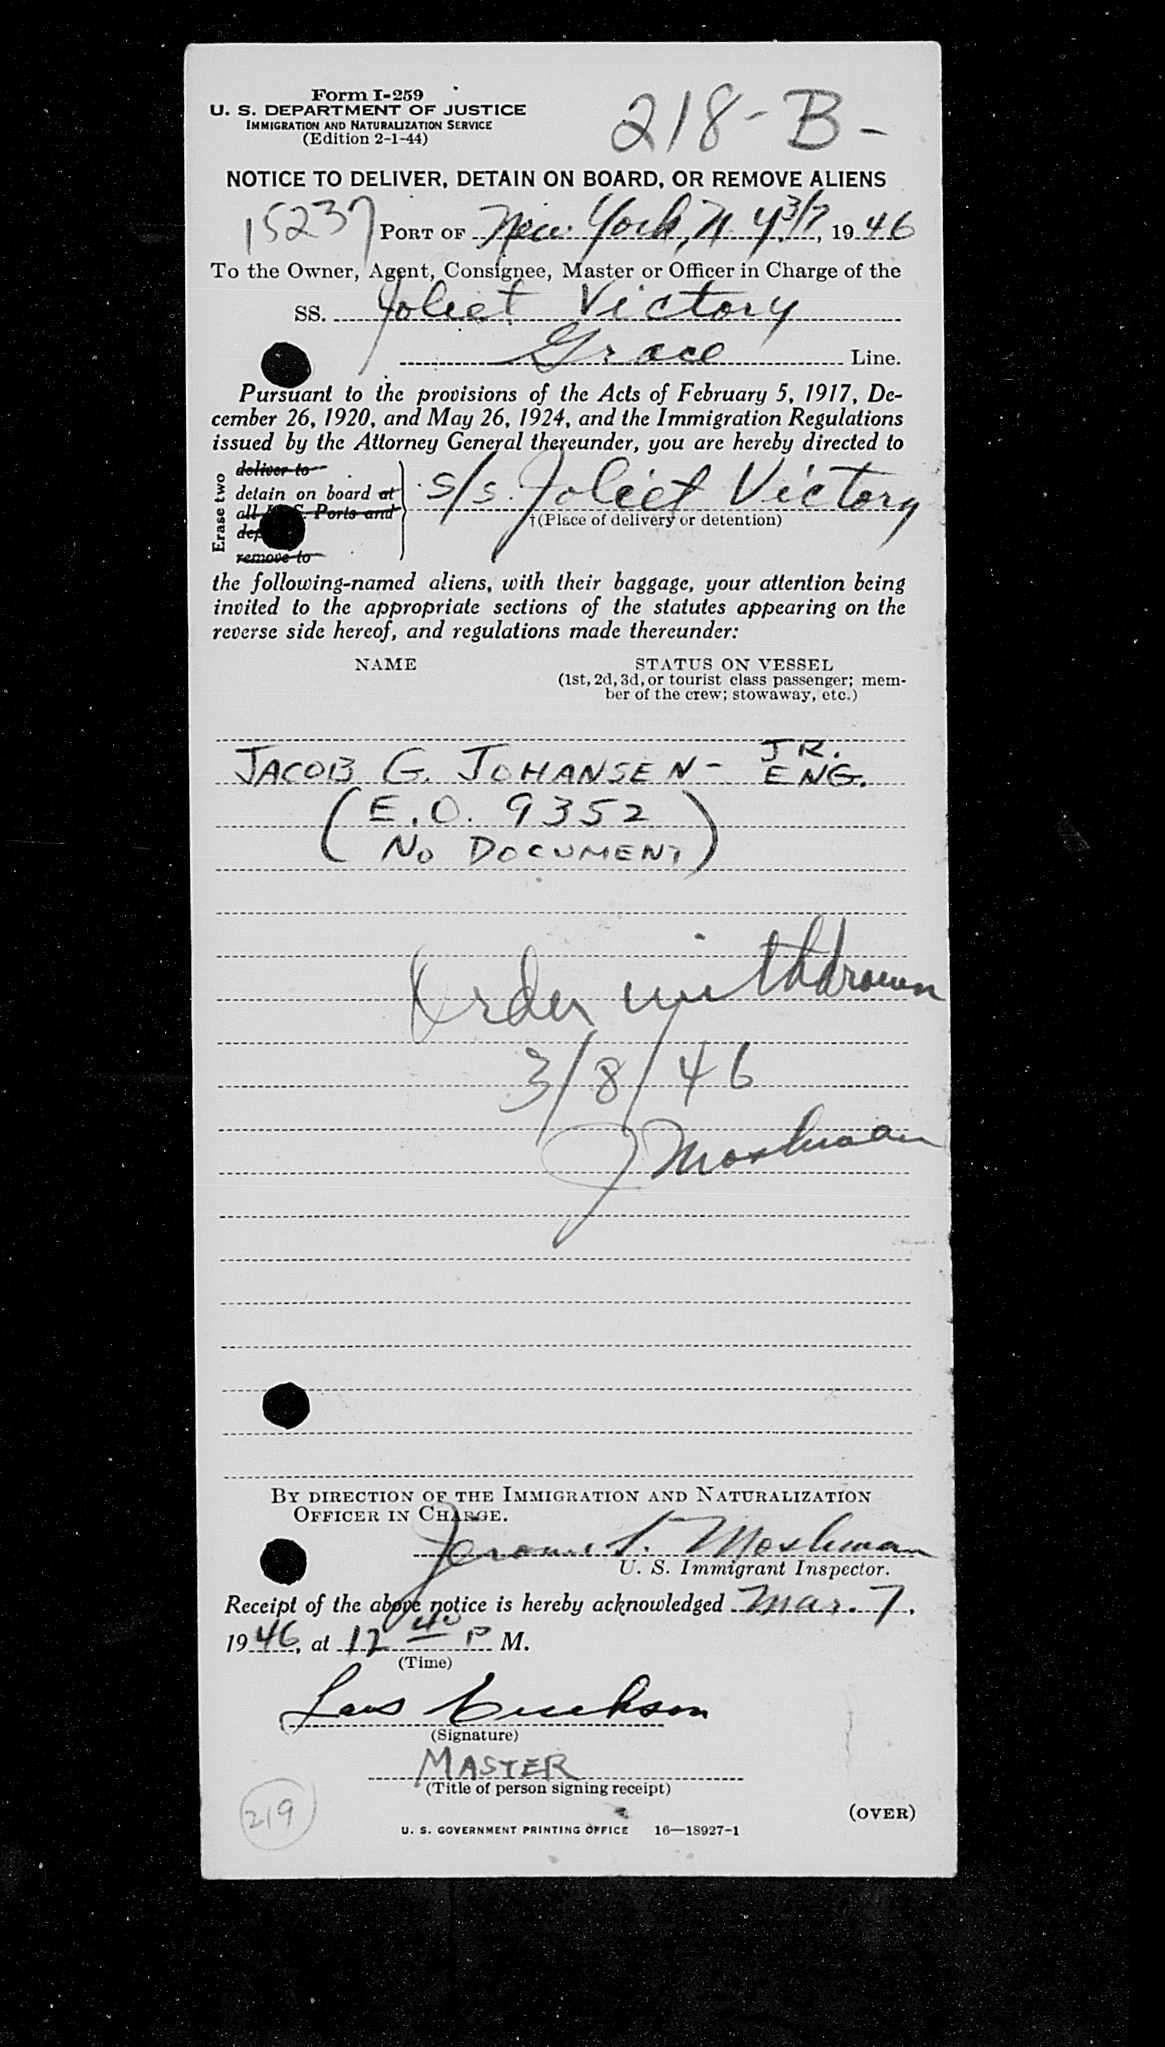 Form I-259
U. S. DEPARTMENT OF JUSTICE
IMMIGRATION AND NATURALIZATION SERVICE
(Edition 2-1-44)
218-B-
NOTICE TO DELIVER, DETAIN ON BOARD, OR REMOVE ALIENS
15237 PORT OF New York, N.Y. 3/7, 1946
To the Owner, Agent, Consignee, Master or Officer in Charge of the
SS. Joliet Victory
Grace Line.
Pursuant to the provisions of the Acts of February 5, 1917, De-
cember 26, 1920, and May 26, 1924, and the Immigration Regulations
issued by the Attorney General thereunder, you are hereby directed to
Erase two
deliver to
detain on board at
all U. S. Ports and
remove to
s/s. Joliet Victory
†(Place of delivery or detention)
the following-named aliens, with their baggage, your attention being
invited to the appropriate sections of the statutes appearing on the
reverse side hereof, and regulations made thereunder:
NAME STATUS ON VESSEL
(1st, 2d, 3d, or tourist class passenger; mem-
ber of the crew; stowaway, etc.)
JACOB G. JOHANSEN - JR. ENG.
(E.O. 9352
NO DOCUMENT)
Order withdrawn
3/8/46
J Moshman
BY DIRECTION OF THE IMMIGRATION AND NATURALIZATION
OFFICER IN CHARGE.
Jerome S. Moshman
U. S. Immigrant Inspector.
Receipt of the above notice is hereby acknowledged Mar. 7,
1946, at 12 40 P M.
(Time)
Lars Erickson
(Signature)
MASTER
(Title of person signing receipt)
219
(OVER)
U. S. GOVERNMENT PRINTING OFFICE 16—18927-1